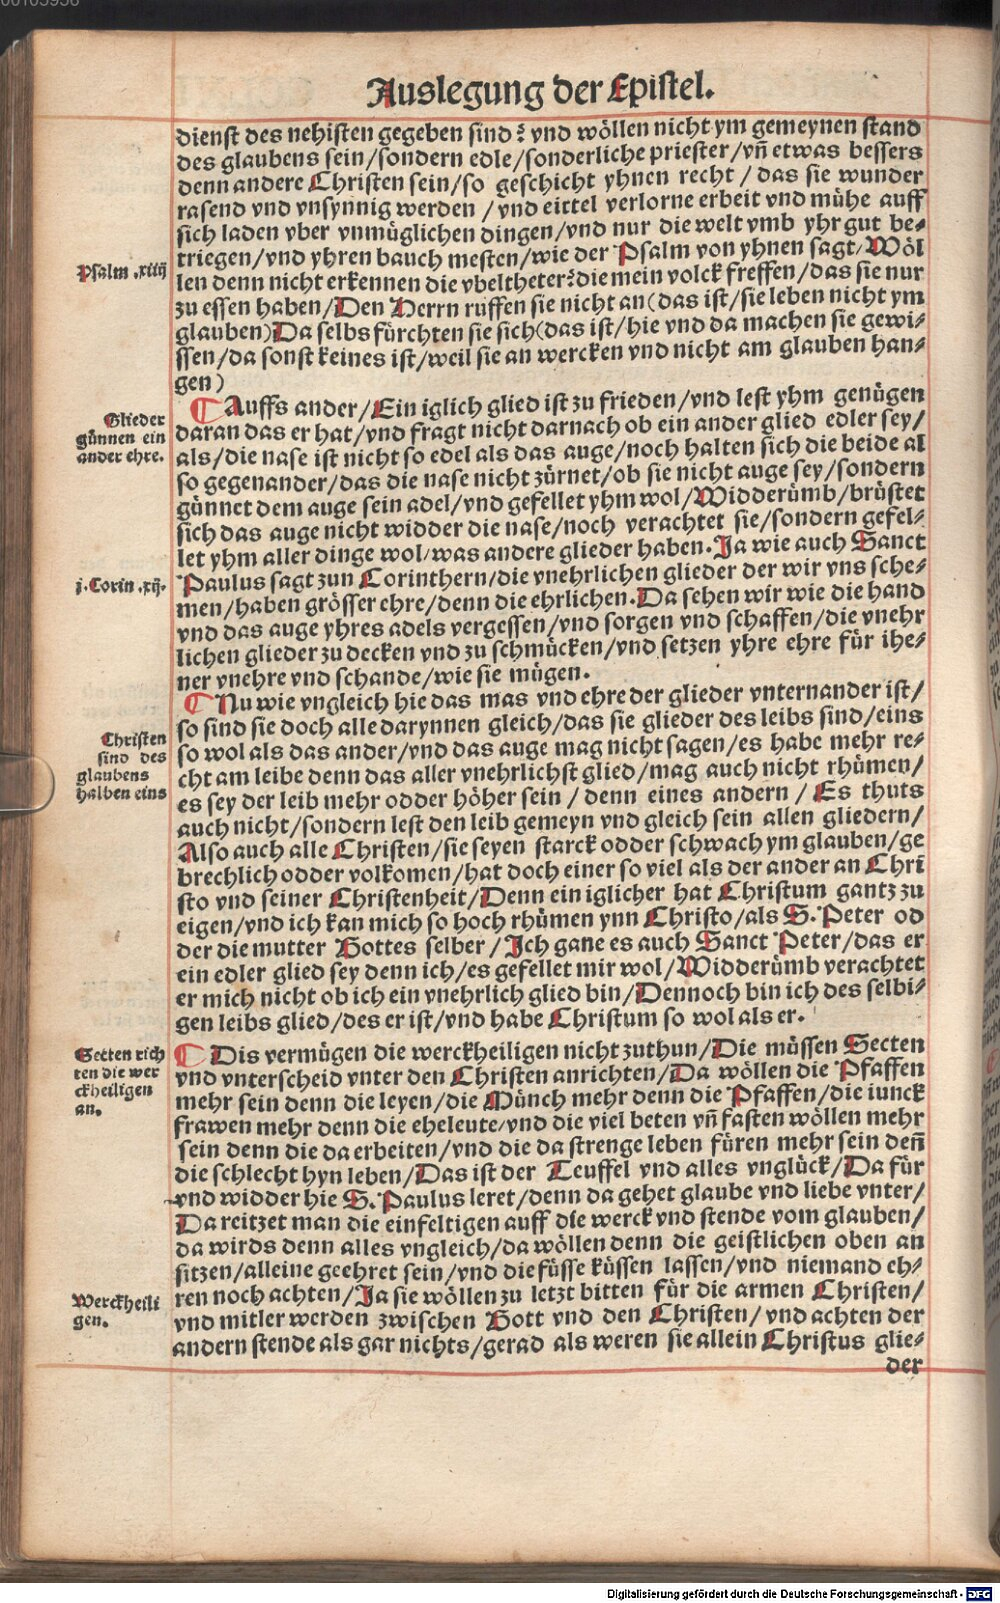 Auslegung der Epistel.
dienst des nehisten gegeben sind? vnd wöllen nicht ym gemeynen stand
des glaubens sein/sondern edle/sonderliche priester/vñ etwas bessers
denn andere Christen sein/so geschicht yhnen recht/das sie wunder
rasend vnd vnsynnig werden/vnd eittel verlorne erbeit vnd mühe auff
sich laden vber vnmüglichen dingen/vnd nur die welt vmb yhr gut be-
triegen/vnd yhren bauch mesten/wie der Psalm von yhnen sagt/Wöl
Psalm .xiiij
len denn nicht erkennen die vbeltheter? die mein volck fressen/das sie nur
zu essen haben/Den Herrn ruffen sie nicht an(das ist/sie leben nicht ym
glauben)Da selbs fürchten sie sich(das ist/hie vnd da machen sie gewi-
ssen/da sonst keines ist/weil sie an wercken vnd nicht am glauben han-
gen)
¶ Auffs ander/Ein iglich glied ist zu frieden/vnd lest yhm genügen
Glieder
günnen ein
ander ehre.
daran das er hat/vnd fragt nicht darnach ob ein ander glied edler sey/
als/die nase ist nicht so edel als das auge/noch halten sich die beide al
so gegenander/das die nase nicht zürnet/ob sie nicht auge sey/sondern
günnet dem auge sein adel/vnd gefellet yhm wol/Widderümb/brüstet
sich das auge nicht widder die nase/noch verachtet sie/sondern gefel-
let yhm aller dinge wol/was andere glieder haben. Ja wie auch Sanct
j. Corin .xij.
Paulus sagt zun Corinthern/die vnehrlichen glieder der wir vns sche-
men/haben grösser ehre/denn die ehrlichen. Da sehen wir wie die hand
vnd das auge yhres adels vergessen/vnd sorgen vnd schaffen/die vnehr
lichen glieder zu decken vnd zu schmücken/vnd setzen yhre ehre für ihe-
ner vnehre vnd schande/wie sie mügen.
¶ Nu wie vngleich hie das mas vnd ehre der glieder vnternander ist/
so sind sie doch alle darynnen gleich/das sie glieder des leibs sind/eins
Christen
sind des
glaubens
halben eins
so wol als das ander/vnd das auge mag nicht sagen/es habe mehr re-
cht am leibe denn das aller vnehrlichst glied/mag auch nicht rhümen/
es sey der leib mehr odder höher sein/denn eines andern/Es thuts
auch nicht/sondern lest den leib gemeyn vnd gleich sein allen gliedern/
Also auch alle Christen/sie seyen starck odder schwach ym glauben/ge
brechlich odder volkomen/hat doch einer so viel als der ander an Chri
sto vnd seiner Christenheit/Denn ein iglicher hat Christum gantz zu
eigen/vnd ich kan mich so hoch rhümen ynn Christo/als S. Peter od
der die mutter Gottes selber/Ich gane es auch Sanct Peter/das er
ein edler glied sey denn ich/es gefellet mir wol/Widderümb verachtet
er mich nicht ob ich ein vnehrlich glied bin/Dennoch bin ich des selbi-
gen leibs glied/des er ist/vnd habe Christum so wol als er.
Secten rich
ten die wer
ckheiligen
an.
¶ Dis vermügen die werckheiligen nicht zuthun/Die müssen Secten
vnd vnterscheid vnter den Christen anrichten/Da wöllen die Pfaffen
mehr sein denn die leyen/die Münch mehr denn die Pfaffen/die iunck
frawen mehr denn die eheleute/vnd die viel beten vñ fasten wöllen mehr
sein denn die da erbeiten/vnd die da strenge leben füren mehr sein deñ
die schlecht hyn leben/Das ist der Teuffel vnd alles vnglück/Da für
vnd widder hie S. Paulus leret/denn da gehet glaube vnd liebe vnter/
Da reitzet man die einfeltigen auff die werck vnd stende vom glauben/
da wirds denn alles vngleich/da wöllen denn die geistlichen oben an
sitzen/alleine geehret sein/vnd die füsse küssen lassen/vnd niemand eh-
Werckheili
gen.
ren noch achten/Ja sie wöllen zu letzt bitten für die armen Christen/
vnd mitler werden zwischen Gott vnd den Christen/vnd achten der
andern stende als gar nichts/gerad als weren sie allein Christus glie-
der
Digitalisierung gefördert durch die Deutsche Forschungsgemeinschaft - DFG